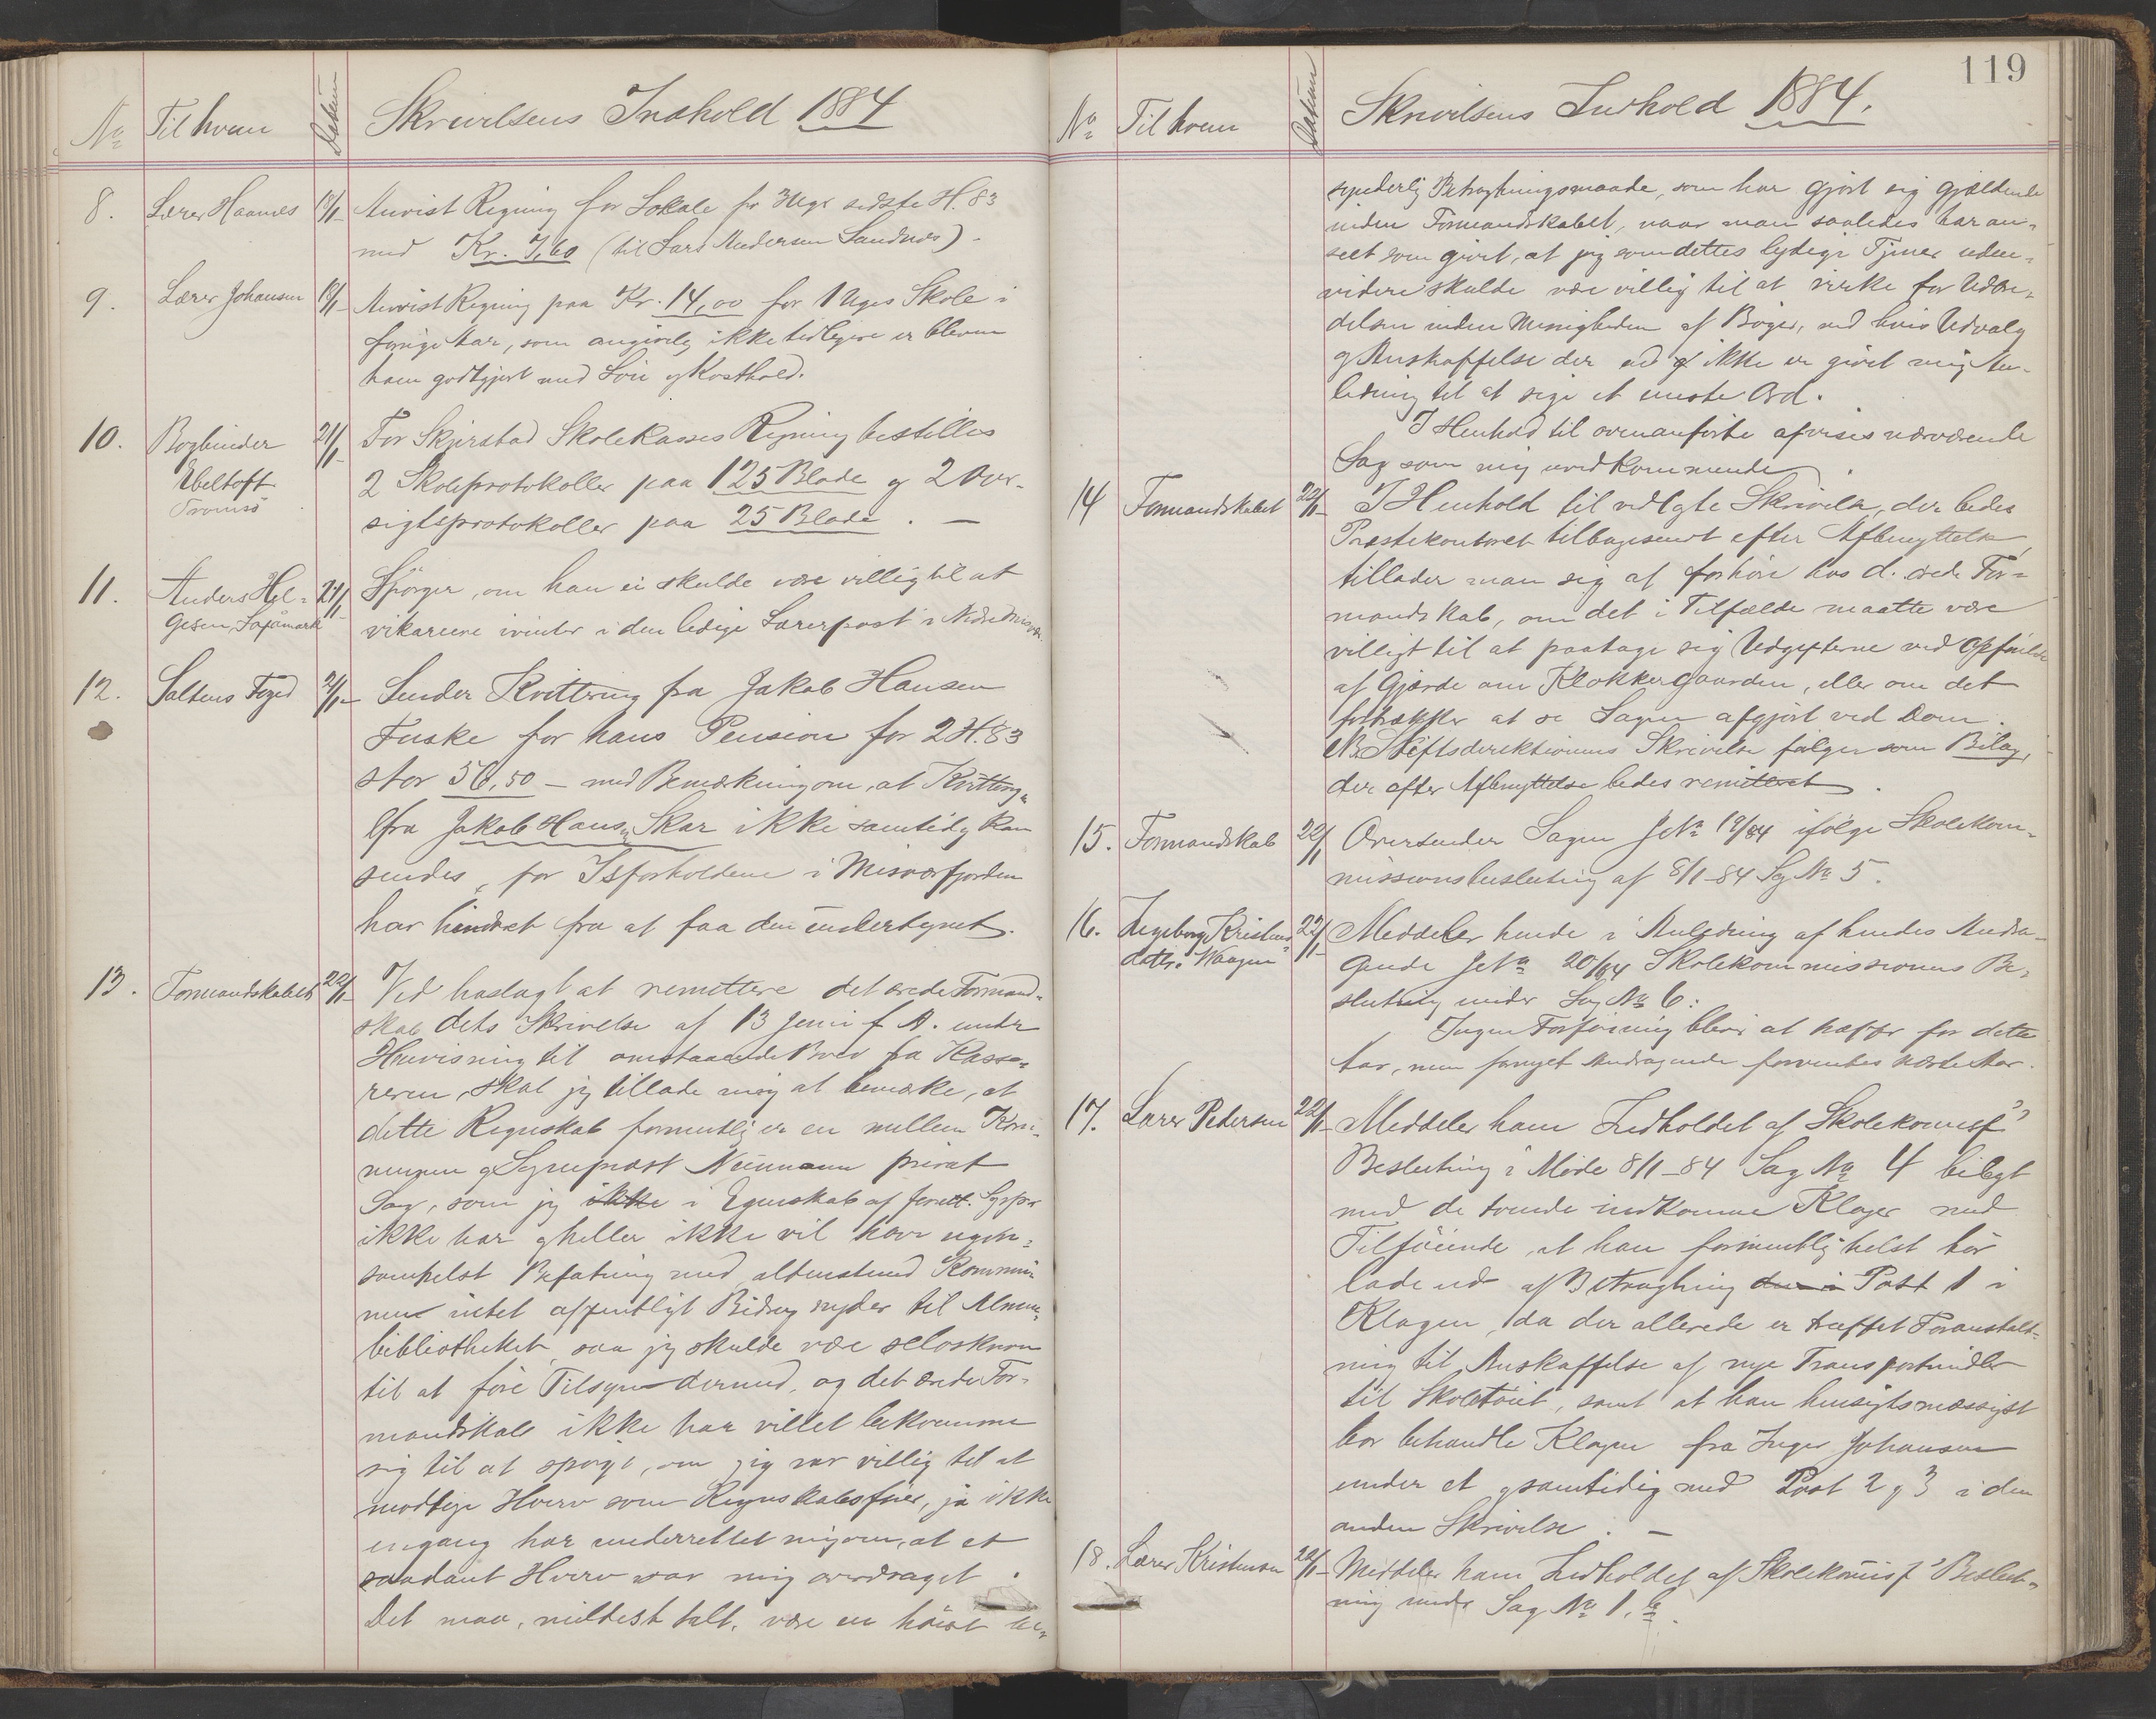 No Til hvem Datum Skrivelsens Indhold 1884
8. Lærer Haanæs 18/1 Anvist Regning for Lokale for 3 Uger sidste H. 83
med Kr. 7,60 (til Lars Andersen Sandnæs).
9. Lærer Johansen 18/1 Anvist Regning paa Kr. 14,00 for 1 Uges Skole i
forrige Aar, som angivelig ikke tidligere er bleven
ham godtgjort med Løn og Kosthold.
10. Bogbinder 21/1 For Skjerstad Skolekasses Regning bestilles
Ebeltoft 2 Skoleprotokoller paa 125 Blade og 2 Over-
Tromsö sigtsprotokoller paa 25 Blade. —
11. Anders Hel- 21/1 Spörger, om han ei skulde være villig til at
gesen, vikariere ivinter i den ledige Lærerpost i Nedre Misvær.
12. Saltens Foged 21/1 Sender Kvittering fra Jakob Hansen
Fuske for hans Pension for 2 H. 83
stor 56,50 — med Bemærkning om, at Kvittering
fra Jakob Hans. Skar ikke samtidig kan
sendes, for Isforholdene i Misværfjorden
har hindret fra at faa den undertegnet.
13. Formandskabet 22/1 Ved hoslagt at remittere det ærede Formand-
skab dets Skrivelse af 13 Juni f. A. under
Henvisning til omstaaende Brev fra Kasse-
reren, skal jeg tillade mig at bemærke, at
dette Regnskab formentlig er en mellem Kom-
munen og Sognepræst Neumann privat
Sag, som jeg ikke i Egenskab af Sogpr
ikke har og heller ikke vil have nogen-
somhelst Befatning med, aldenstund Kommu-
nen intet offentligt Bidrag nyder til Almue-
bibliotheket, saa jeg skulde være selvskreven
til at före Tilsyn dermed, og det ærede For-
mandskab ikke har villet bekvemme
sig til at spörge, om jeg var villig til at
modtage Hverv som Regnskabsförer, ja ikke
engang har underrettet mig om, at et
saadant Hverv var mig overdraget.
Det maa, mildest talt, være en höist
119
No Til hvem Datum Skrivelsens Indhold 1884.
synderlig Betragtningsmaade, som har gjort sig gjældende
inden Formandskabet, naar man saaledes har an-
seet som givet, at jeg som dettes lydige Tjener uden-
videre skulde være villig til at virke for Udbre-
delsen inden Menigheden af Böger, ved hvis Udvalg
og Anskaffelse der ei ikke er givet mig An-
ledning til at sige et eneste Ord.
I Henhold til ovenanförte afvises nærværende
Sag som mig uvedkommende.
14 Formandskabet 22/1 I Henhold til vedlagte Skrivelse, der bedes
Præstekontoret tilbagesendt efter Afbenyttelse,
tillader man sig at forhöre hos d. ærede For-
mandskab, om det i Tilfælde maatte være
villigt til at paatage sig Udgifterne ved Opförelse
af Gjærde om Klokkergaarden, eller om det
foretrækker at se Sagen afgjort ved Dom.
NB Stiftsdirektionens Skrivelse fölger som Bilag,
der efter Afbenyttelse bedes remitteret.
15. Formandskab 22/1 Oversender Sagen J.No 19/84 ifölge Skolekom-
missionsbeslutning af 8/1-84 Sag No 5.
16. Ingeborg Kristens- 22/1 Meddeler hende i Anledning af hendes Andra-
datter Waagen gende J.No 20/84 Skolekommissionens Be-
slutning under Sag No 6:
Ingen Forföining bliver at træffe for dette
Aar, men fornyet Andragende forventes næste Aar.
17. Lærer Pedersen 22/1 Meddeler ham Indholdet af Skolekomss'
Beslutning i Möde 8/1-84 Sag No 4 bilagt
med de tvende indkomne Klager med
Tilföiende, at han formentlig helst bör
lade ud af Betragtning den i Post 1 i
Klagen, da der allerede er truffet Foranstalt-
ning til Anskaffelse af nye Transportmidler
til Skoletöiet, samt at han hensigtsmæssigst
bör behandle Klagen fra Inger Johansen
under et og samtidig med Post 2 og 3 i den
anden Skrivelse. —
18. Lærer Kristensen 22/1 Meddeler ham Indholdet af Skolekomiss' Beslut-
ning under Sag No 1, b.